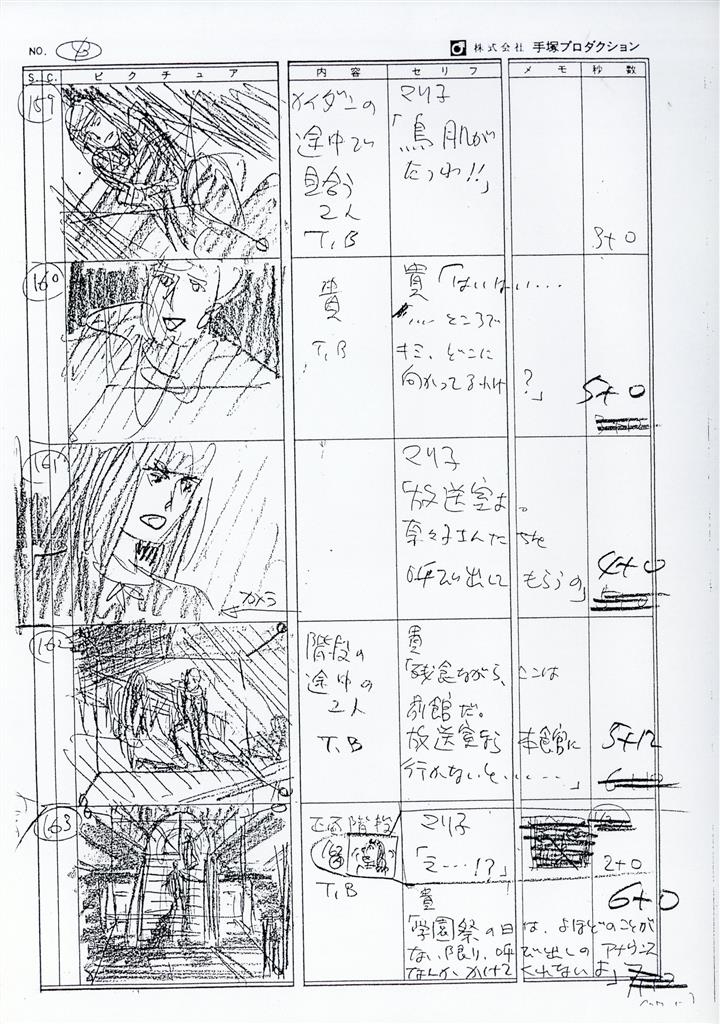 NO. 43
株式会社 手塚プロダクション
S. C. ピクチュア 内容 セリフ メモ 秒数
159
カイダンの
途中で
見合う
2人
T,B
マリ子
「鳥肌が
たつわ!!」
3+0
160
貴
T,B
貴「はいはい…
…ところで
キミ、どこに
向かってるわけ?」
5+0
161
マリ子
「放送室よ。
奈々子さんたちを
呼び出して もらうの」
4+0
162
階段の
途中の
2人
T,B
貴
「残念ながら、ここは
別館だ。
放送室なら 本館に
行かないと……」
5+12
163
正面階段
T,B
マリ子
「え…!?」
2+0
貴
「学園祭の日は、よほどのことが
ない限り、呼び出しの アナウンス
なんか かけて くれないよ」
6+0